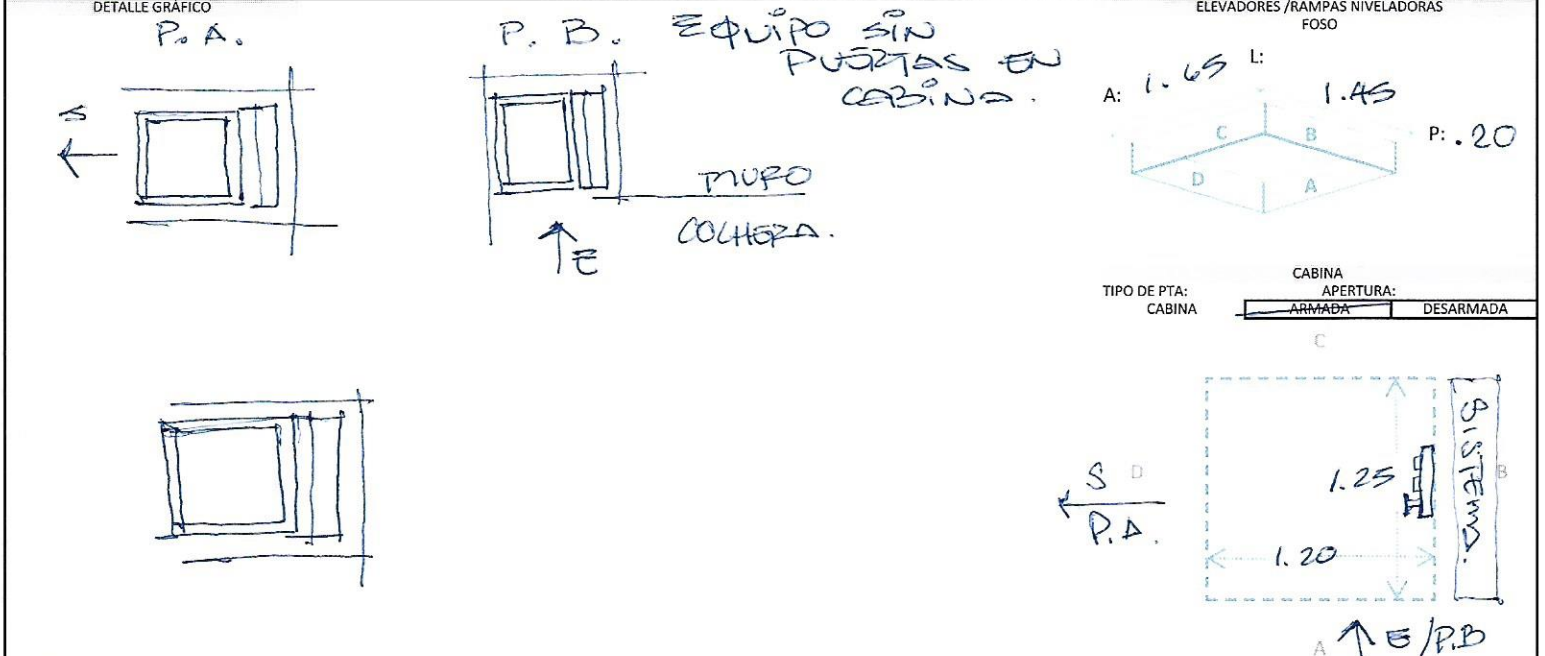 DETALLE GRÁFICO
P. A.
S
P. B.
EQUIPO SIN
PUERTAS EN
CABINA.
MURO
COCHERA.
E
ELEVADORES /RAMPAS NIVELADORAS
FOSO
A: 1.65 L: 1.45
P: .20
C B
D A
CABINA
TIPO DE PTA: APERTURA:
CABINA ARMADA DESARMADA
C
S D
P.A.
1.25
SISTEMA.
B
1.20
A E/P.B